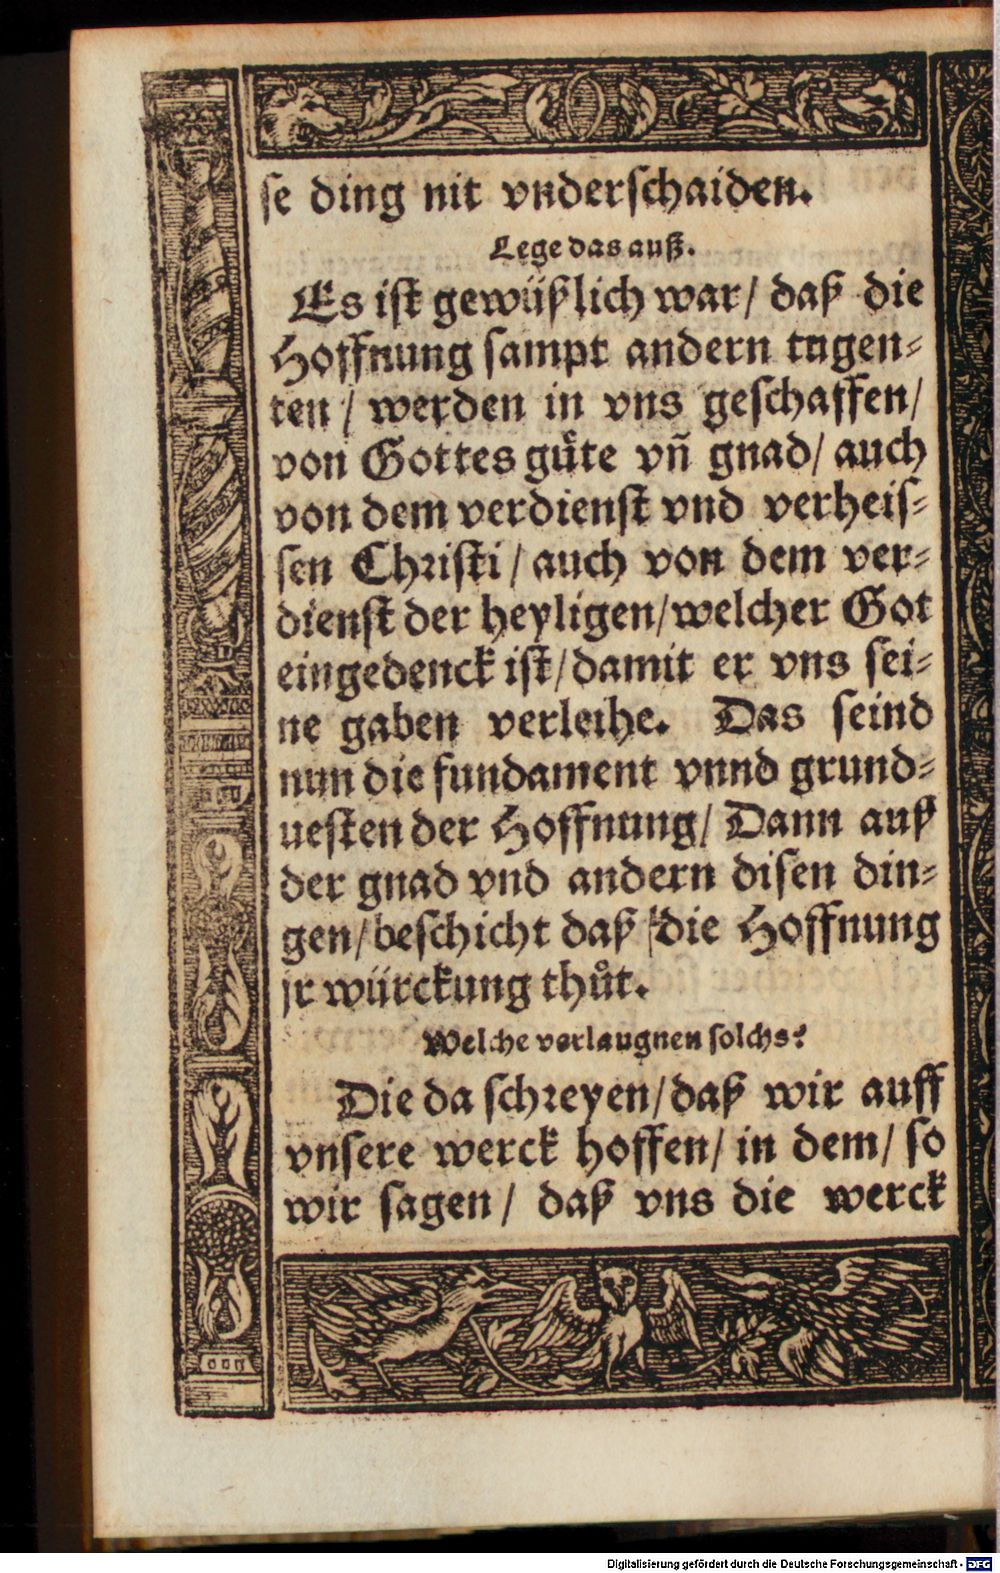 se ding nit vnderschaiden.
Lege das auß.
Es ist gewüßlich war/ daß die
Hoffnung sampt andern tugen-
ten / werden in vns geschaffen/
von Gottes guͤte vñ gnad/ auch
von dem verdienst vnd verheis-
sen Christi / auch von dem ver-
dienst der heyligen/welcher Got
eingedenck ist/damit er vns sei-
ne gaben verleihe. Das seind
nun die fundament vnnd grund-
uesten der Hoffnung/ Dann auß
der gnad vnd andern disen din-
gen/beschicht daß die Hoffnung
jr würckung thuͦt.
Welche verlaugnen solchs?
Die da schreyen/daß wir auff
vnsere werck hoffen/ in dem/ so
wir sagen / daß vns die werck
Digitalisierung gefördert durch die Deutsche Forschungsgemeinschaft - DFG